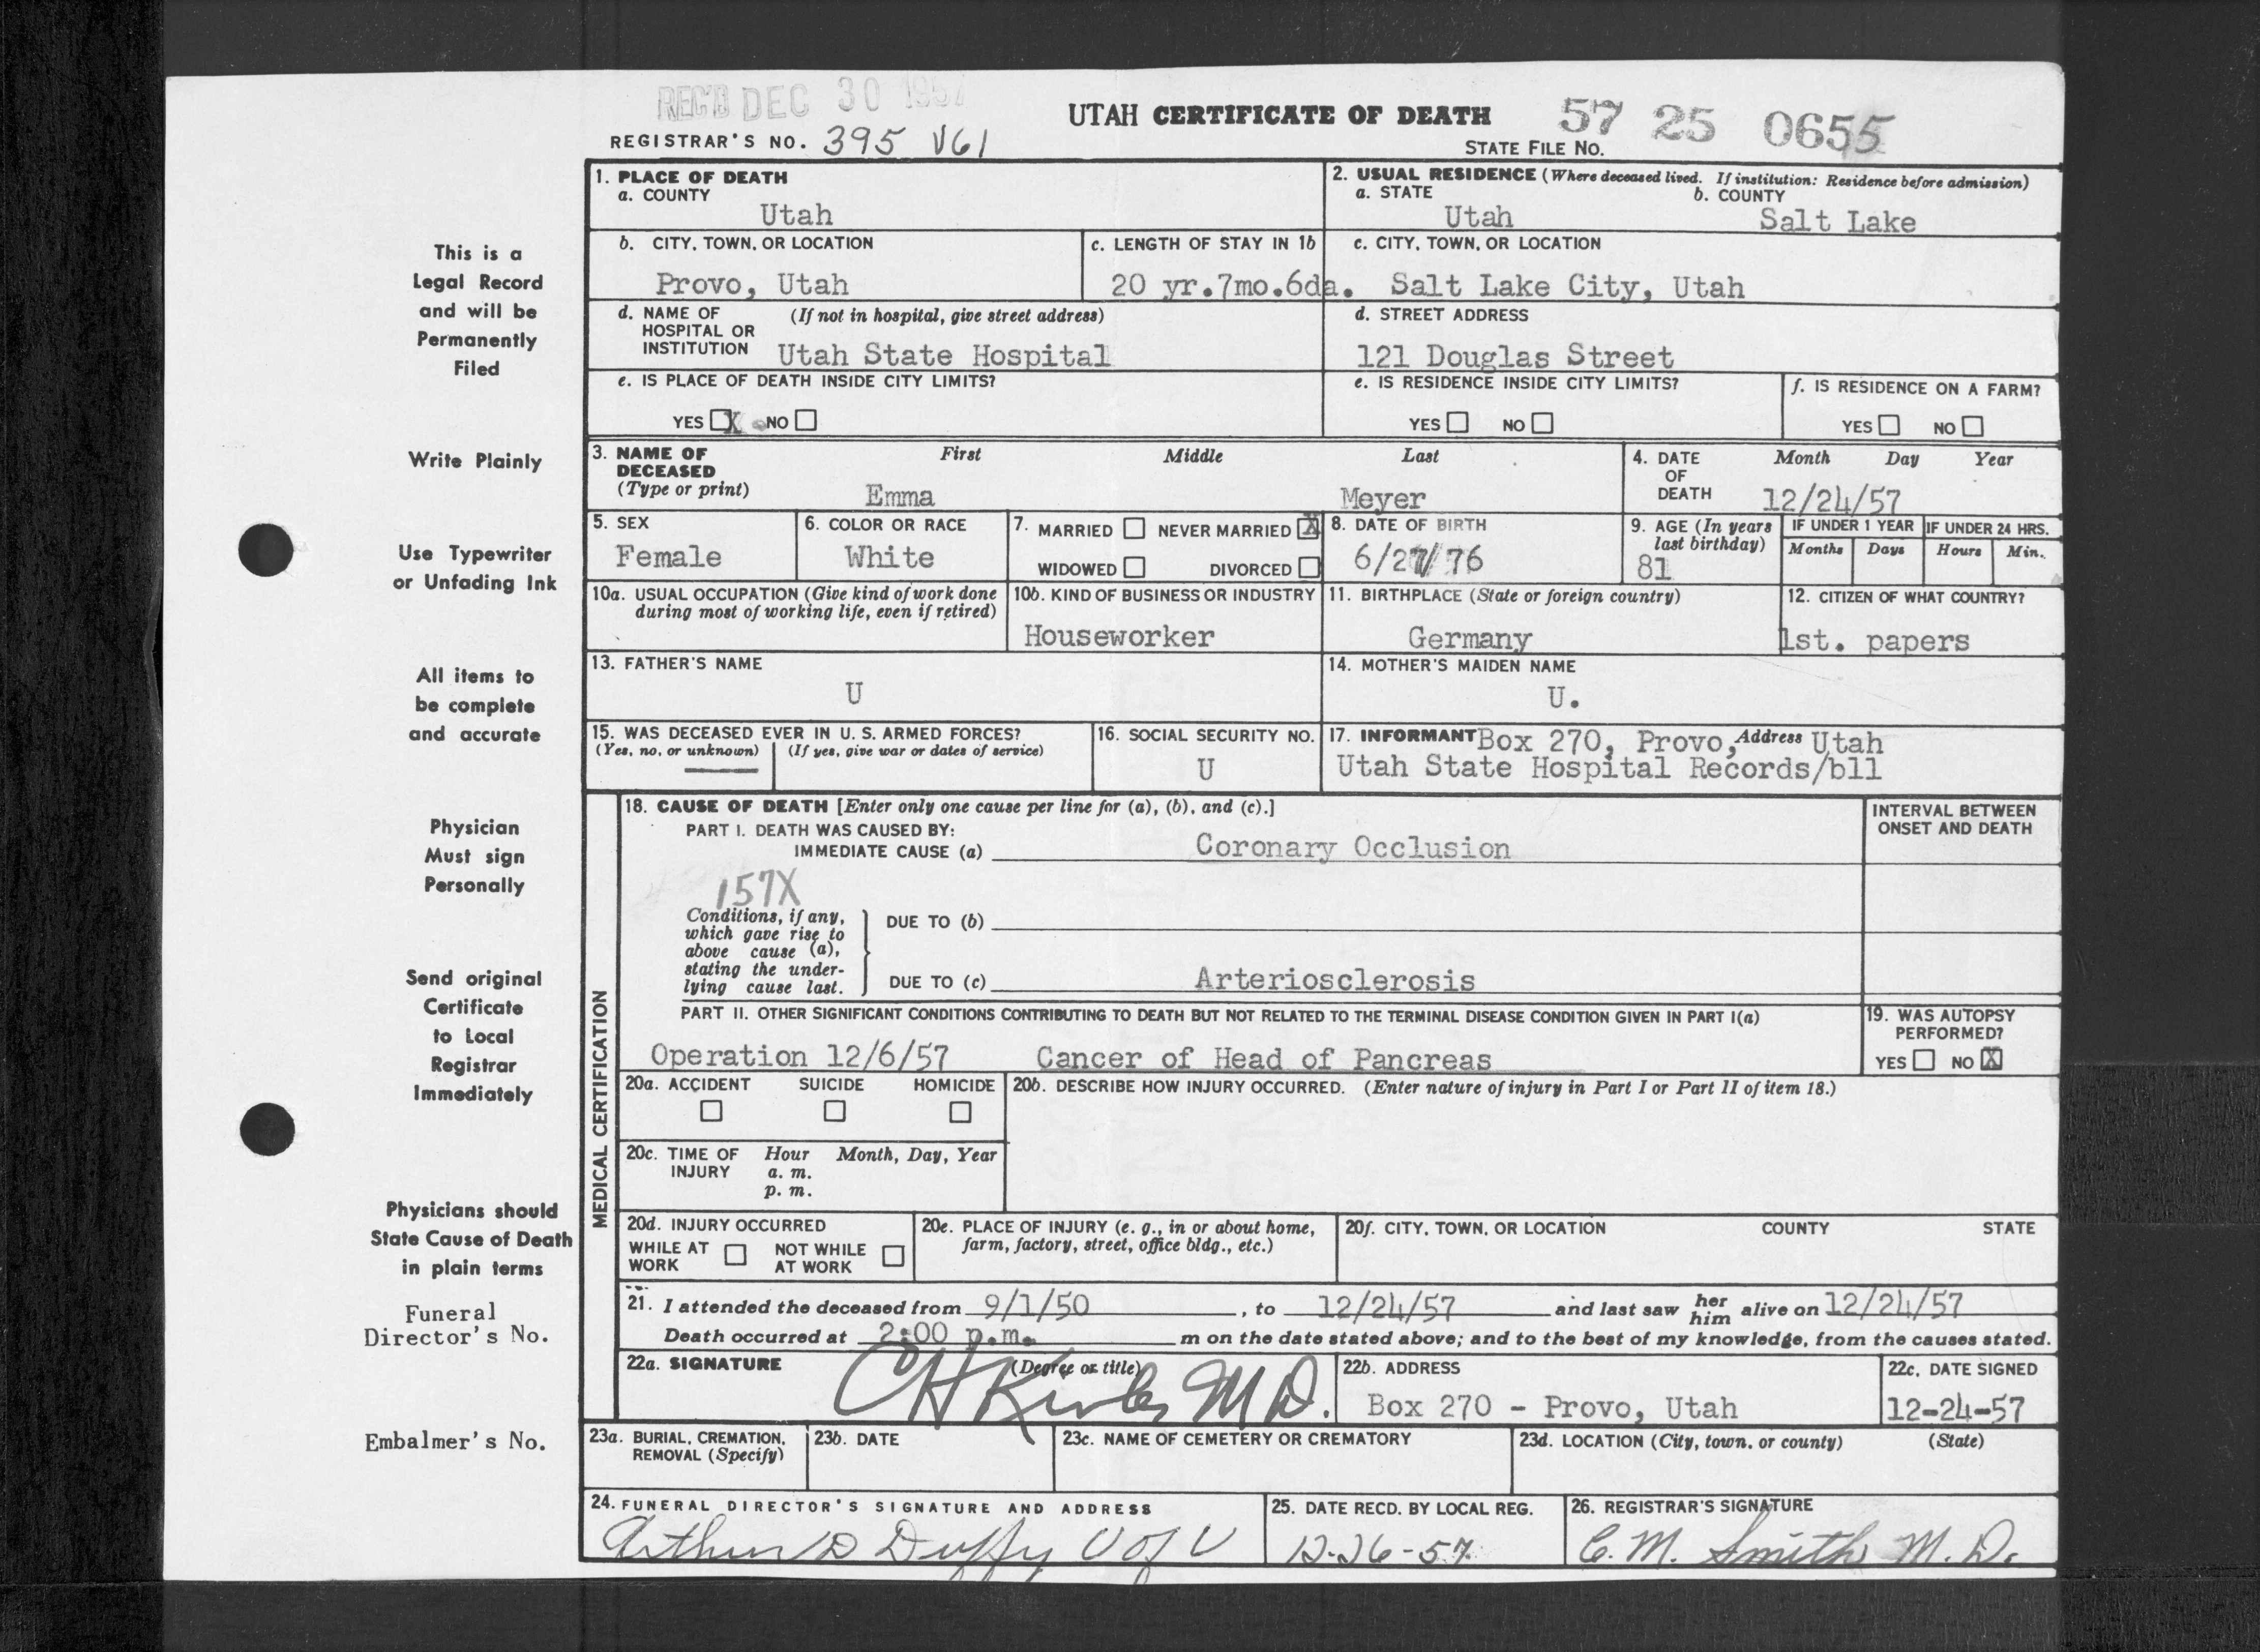 REC'D DEC 30 1957
UTAH CERTIFICATE OF DEATH
57 25 0655
REGISTRAR'S NO. 395 V61
STATE FILE No.
This is a
Legal Record
and will be
Permanently
Filed
Write Plainly
Use Typewriter
or Unfading Ink
All items to
be complete
and accurate
Physician
Must sign
Personally
Send original
Certificate
to Local
Registrar
Immediately
Physicians should
State Cause of Death
in plain terms
Funeral
Director's No.
Embalmer's No.
1. PLACE OF DEATH
a. COUNTY
Utah
2. USUAL RESIDENCE (Where deceased lived. If institution: Residence before admission)
a. STATE b. COUNTY
Utah Salt Lake
b. CITY, TOWN, OR LOCATION
Provo, Utah
c. LENGTH OF STAY IN 1b
20 yr.7mo.6da.
c. CITY, TOWN, OR LOCATION
Salt Lake City, Utah
d. NAME OF (If not in hospital, give street address)
HOSPITAL OR
INSTITUTION Utah State Hospital
d. STREET ADDRESS
121 Douglas Street
e. IS PLACE OF DEATH INSIDE CITY LIMITS?
YES X NO
e. IS RESIDENCE INSIDE CITY LIMITS?
YES NO
f. IS RESIDENCE ON A FARM?
YES NO
3. NAME OF First Middle Last
DECEASED
(Type or print) Emma Meyer
4. DATE Month Day Year
OF
DEATH 12/24/57
5. SEX
Female
6. COLOR OR RACE
White
7. MARRIED NEVER MARRIED X
WIDOWED DIVORCED
8. DATE OF BIRTH
6/27/76
9. AGE (In years
last birthday)
81
IF UNDER 1 YEAR IF UNDER 24 HRS.
Months Days Hours Min.
10a. USUAL OCCUPATION (Give kind of work done
during most of working life, even if retired)
10b. KIND OF BUSINESS OR INDUSTRY
Houseworker
11. BIRTHPLACE (State or foreign country)
Germany
12. CITIZEN OF WHAT COUNTRY?
1st. papers
13. FATHER'S NAME
U
14. MOTHER'S MAIDEN NAME
U.
15. WAS DECEASED EVER IN U. S. ARMED FORCES?
(Yes, no, or unknown) (If yes, give war or dates of service)
16. SOCIAL SECURITY NO.
U
17. INFORMANT Box 270, Provo, Address Utah
Utah State Hospital Records/bll
MEDICAL CERTIFICATION
18. CAUSE OF DEATH [Enter only one cause per line for (a), (b), and (c).]
PART I. DEATH WAS CAUSED BY:
IMMEDIATE CAUSE (a) Coronary Occlusion
INTERVAL BETWEEN
ONSET AND DEATH
157X
Conditions, if any,
which gave rise to
above cause (a),
stating the under-
lying cause last.
DUE TO (b)
DUE TO (c) Arteriosclerosis
PART II. OTHER SIGNIFICANT CONDITIONS CONTRIBUTING TO DEATH BUT NOT RELATED TO THE TERMINAL DISEASE CONDITION GIVEN IN PART I(a)
Operation 12/6/57 Cancer of Head of Pancreas
19. WAS AUTOPSY
PERFORMED?
YES NO X
20a. ACCIDENT SUICIDE HOMICIDE
20b. DESCRIBE HOW INJURY OCCURRED. (Enter nature of injury in Part I or Part II of item 18.)
20c. TIME OF Hour Month, Day, Year
INJURY a. m.
p. m.
20d. INJURY OCCURRED
WHILE AT NOT WHILE
WORK AT WORK
20e. PLACE OF INJURY (e. g., in or about home,
farm, factory, street, office bldg., etc.)
20f. CITY, TOWN, OR LOCATION COUNTY STATE
21. I attended the deceased from 9/1/50, to 12/24/57 and last saw her him alive on 12/24/57
Death occurred at 2:00 p.m. m on the date stated above; and to the best of my knowledge, from the causes stated.
22a. SIGNATURE (Degree or title)
C H M D.
22b. ADDRESS
Box 270 - Provo, Utah
22c. DATE SIGNED
12-24-57
23a. BURIAL, CREMATION,
REMOVAL (Specify)
23b. DATE
23c. NAME OF CEMETERY OR CREMATORY
23d. LOCATION (City, town, or county) (State)
24. FUNERAL DIRECTOR'S SIGNATURE AND ADDRESS
Arthur D Duffy U of U
25. DATE RECD. BY LOCAL REG.
12-26-57.
26. REGISTRAR'S SIGNATURE
C. M. Smith M. D.